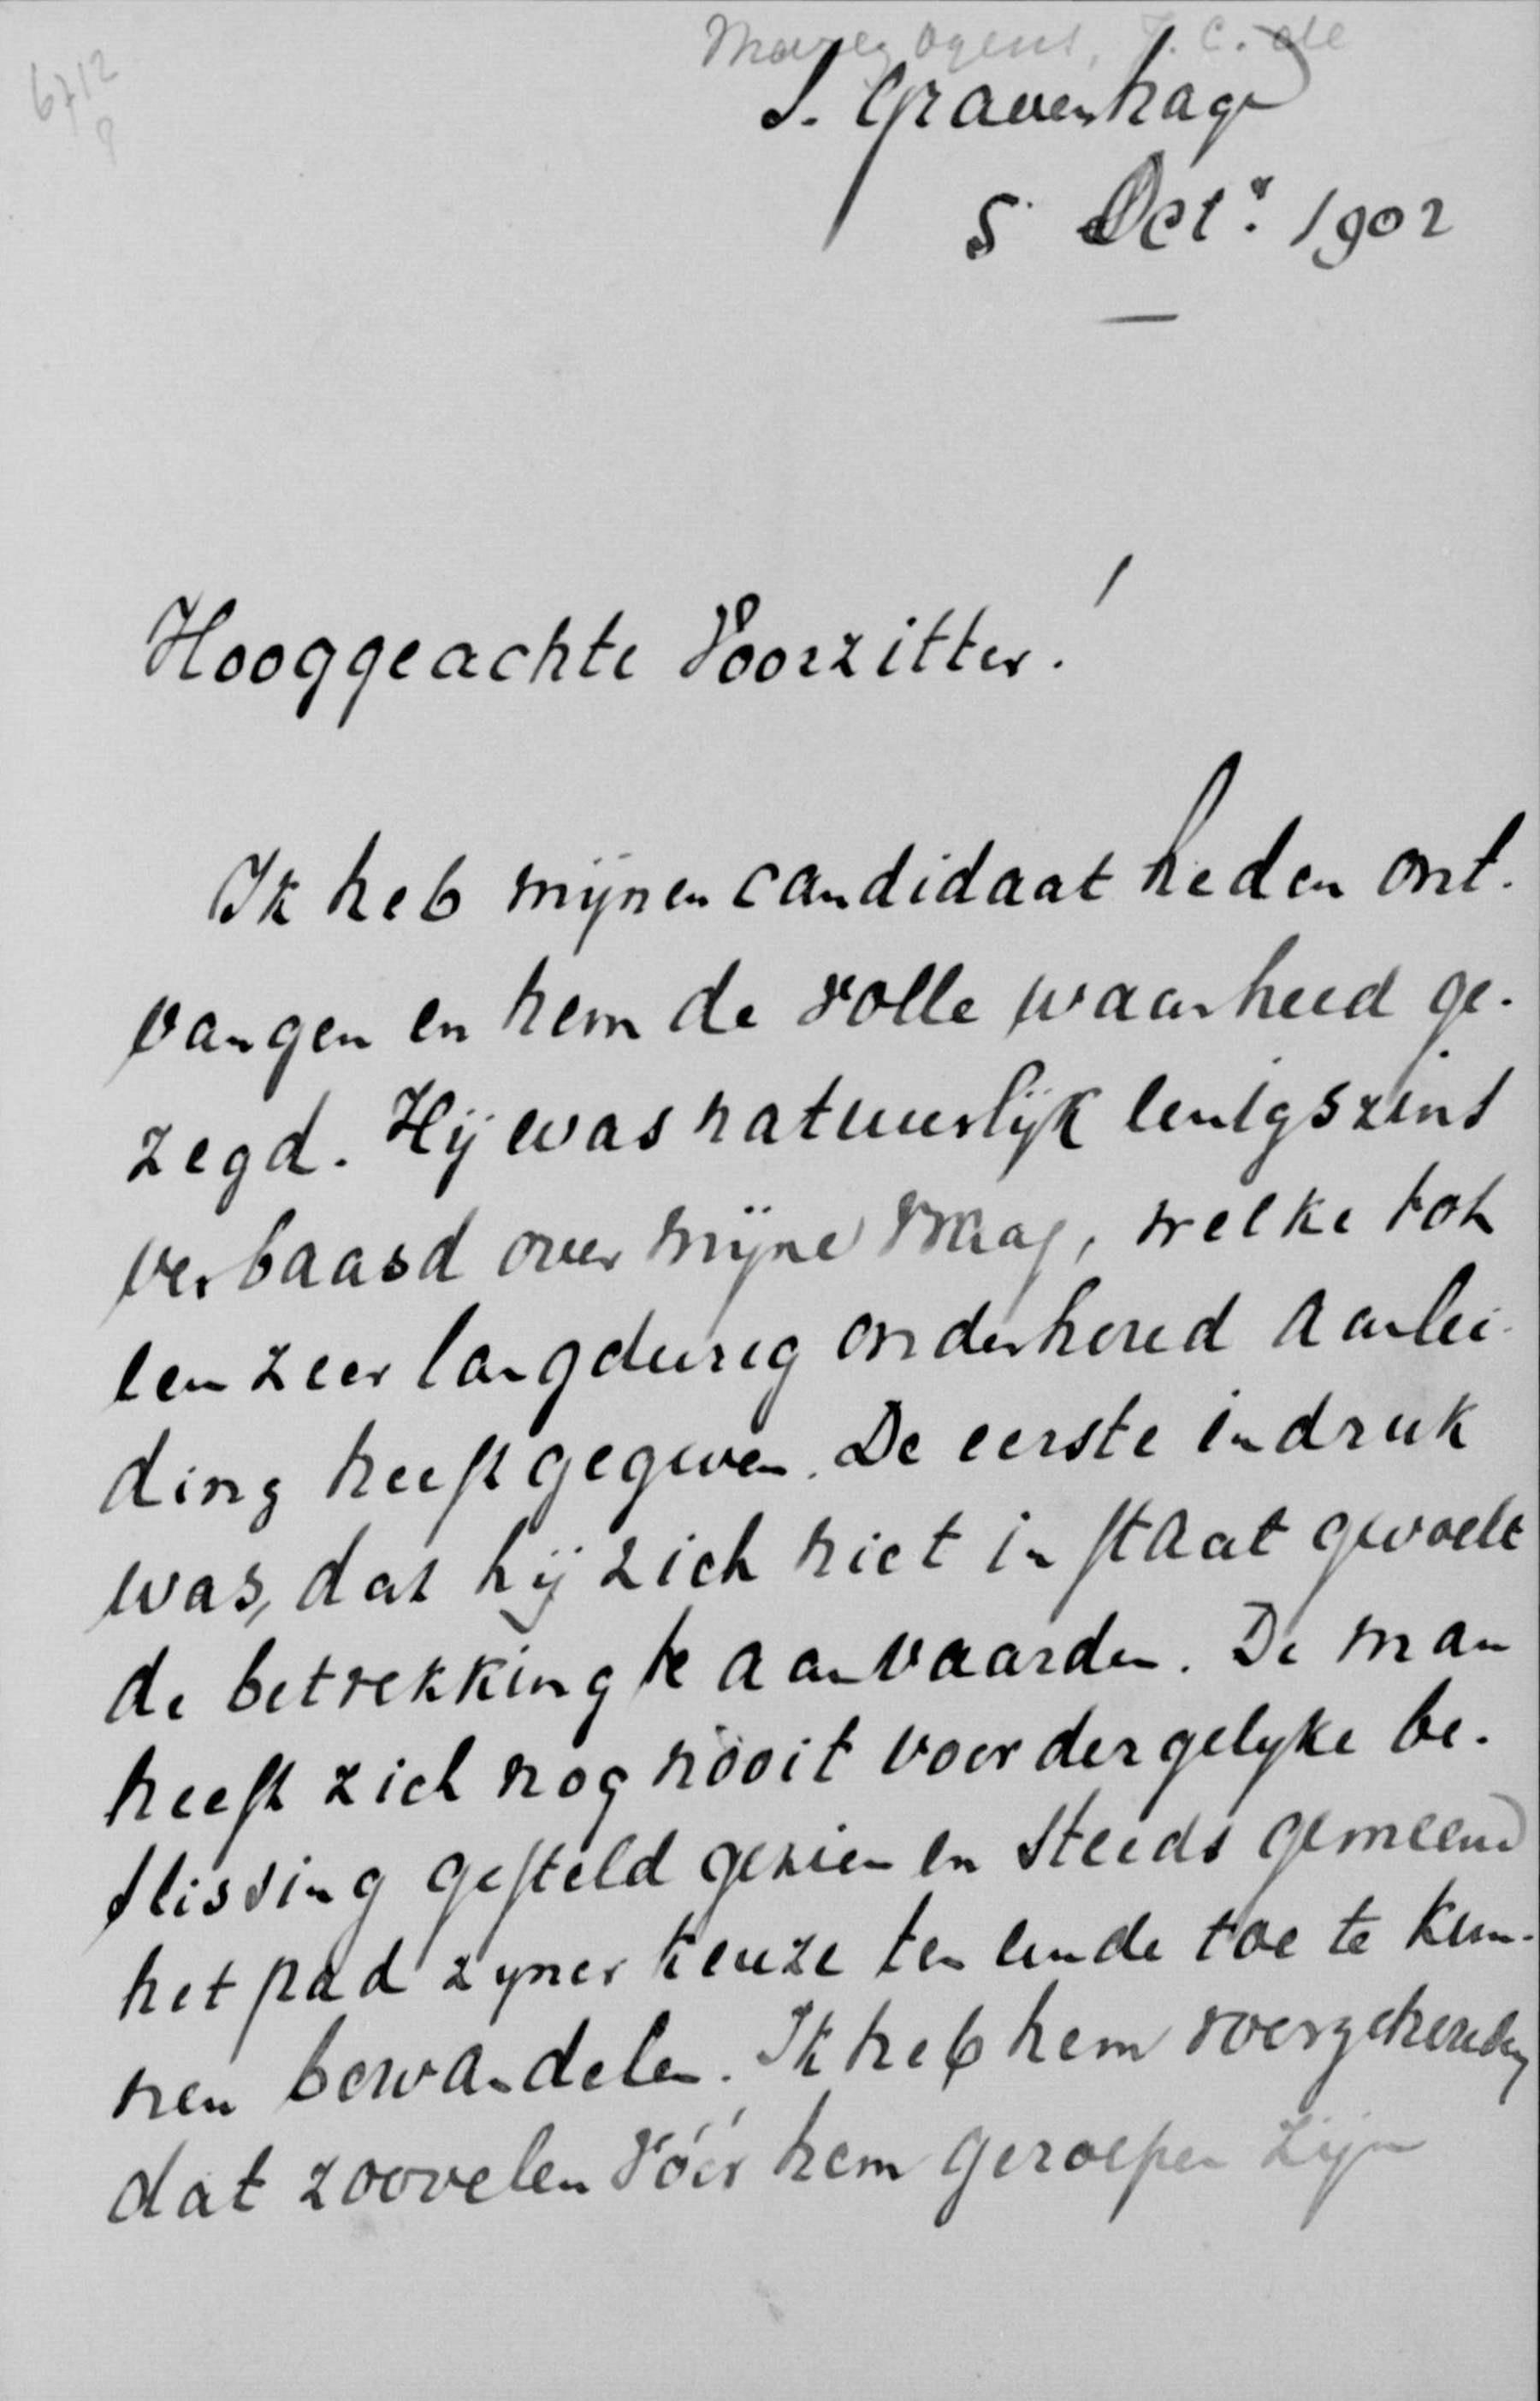 6712
Marez Oyens, J. C. de
S. Gravenhage
5 Oct.r 1902
Hooggeachte Voorzitter!
Ik heb mijnen candidaat heden ont-
vangen en hem de volle waarheid ge-
zegd. Hij was natuurlijk eenigszins
verbaasd over mijne vraag, welke tot
een zeer langdurig onderhoud aanlei-
ding heeft gegeven. De eerste indruk
was, dat hij zich niet in staat gevoelt
de betrekking te aanvaarden. De man
heeft zich nog nooit voor dergelyke be-
slissing gesteld gezien en steeds gemeend
het pad zyner keuze ten einde toe te kun-
nen bewandelen. Ik heb hem voorgehouden
dat zoovelen vóór hem geroepen zijn